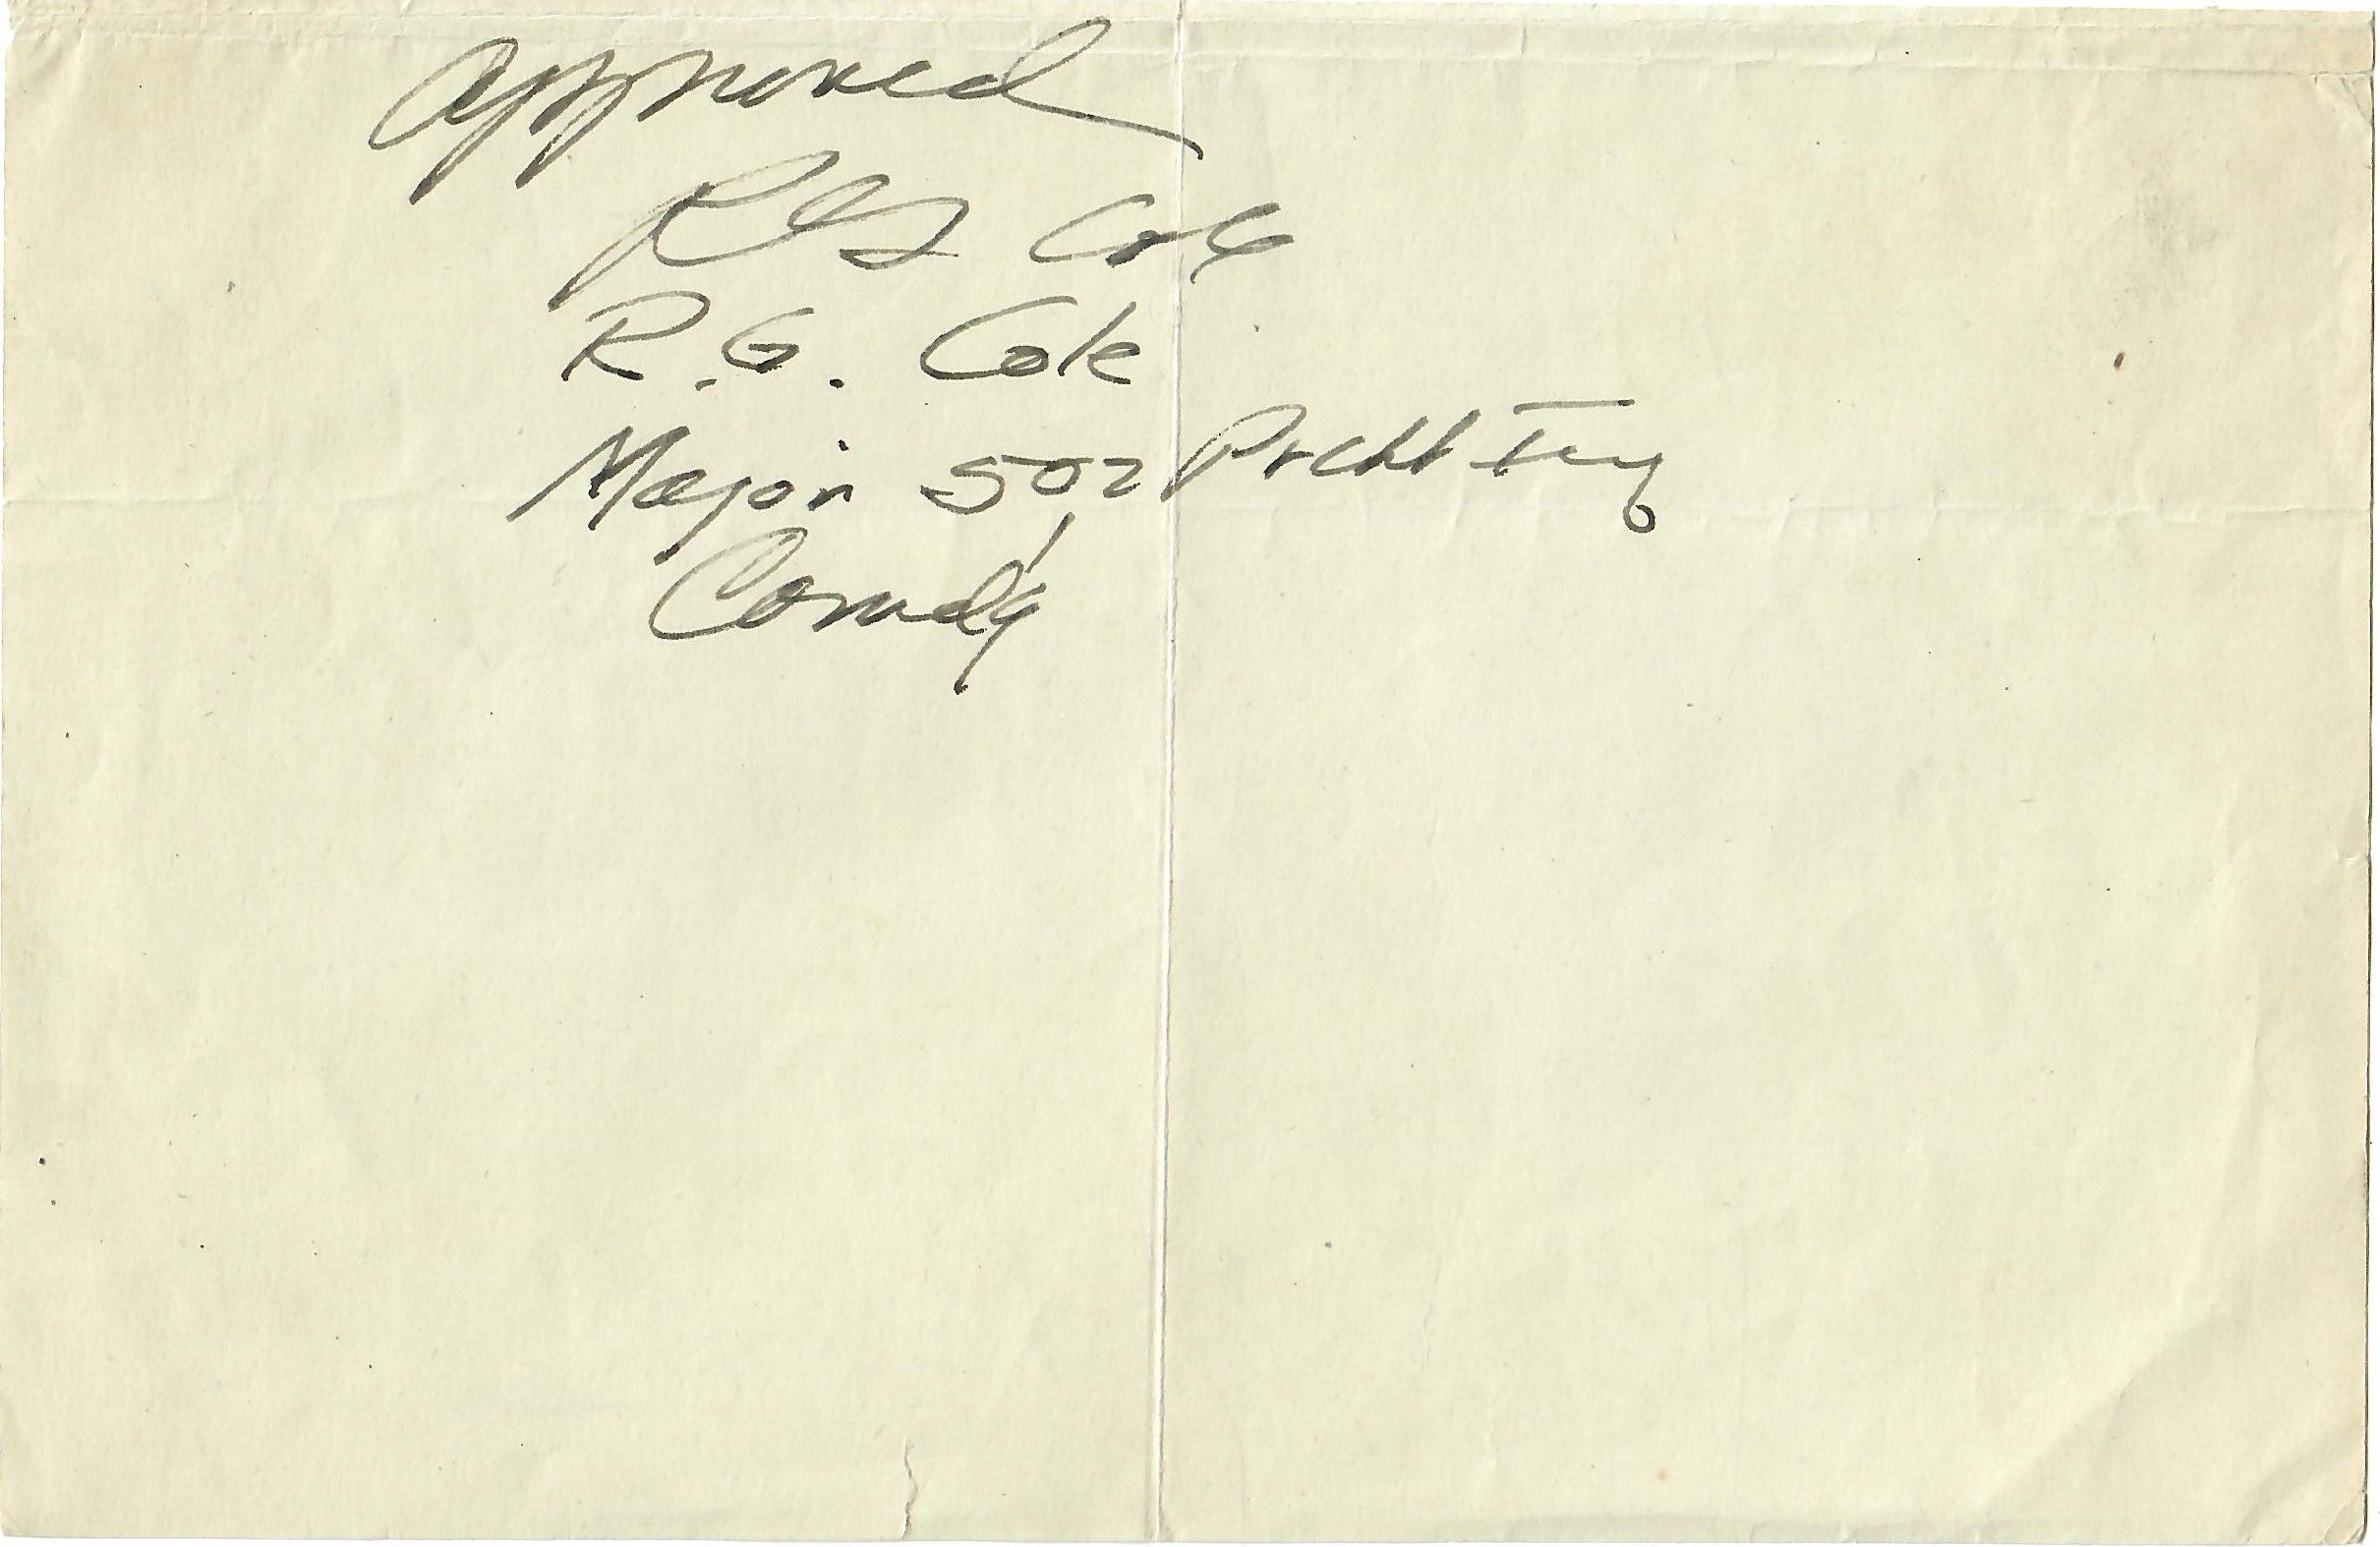 Approved
RG Cole
R.G. Cole
Major 502 Prcht Inf
Comdg